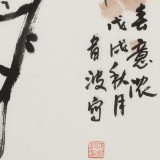 春意浓
戊戌秋月
育波写